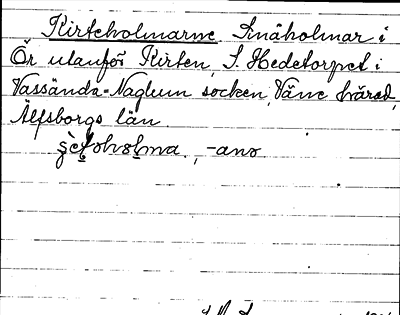 Kirteholmarne Småholmar i
Ör utanför Kirten, S. Hedetorpet i
Vassända-Naglum socken Väne härad,
Älfsborgs län.
, -ano